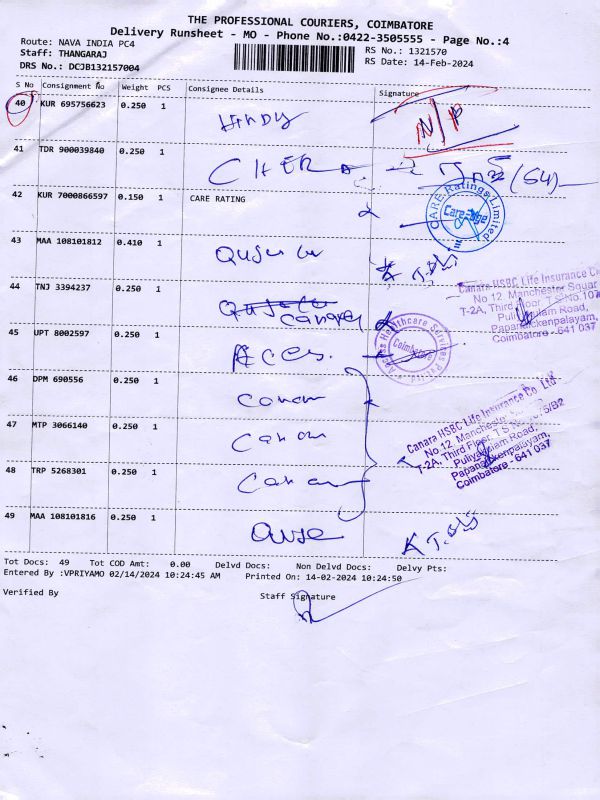 THE PROFESSIONAL COURIERS, COIMBATORE
Delivery Runsheet - MO - Phone No.:0422-3505555 - Page No.:4
Route: NAVA INDIA PC4
RS No.: 1321570
Staff: THANGARAJ
RS Date: 14-Feb-2024
DRS No.: DCJB132157004
S No Consignment No Weight PCS Consignee Details Signature
40 KUR 695756623 0.250 1 N/P
41 TDR 900039840 0.250 1
42 KUR 7000866597 0.150 1 CARE RATING
CARE Ratings Limited
Care-Edge
43 MAA 108101812 0.410 1
44 TNJ 3394237 0.250 1
Canara HSBC Life Insurance
No 12, Manchester Squar
T-2A, Third Floor, T.S No.107
Puliyakulam Road,
Papanaickenpalayam,
Coimbatore - 641 037
45 UPT 8002597 0.250 1 Acces.
Access Healthcare Services
Coimbatore
46 DPM 690556 0.250 1 canar
47 MTP 3066140 0.250 1 canar
48 TRP 5268301 0.250 1 canar
Canara HSBC Life Insurance Co. Ltd
No 12, Manchester
T-2A, Third Floor, T.S
Puliyakulam Road,
Papanaickenpalayam,
Coimbatore - 641 037
49 MAA 108101816 0.250 1
Tot Docs: 49 Tot COD Amt: 0.00 Delvd Docs: Non Delvd Docs: Delvy Pts:
Entered By :VPRIYAMO 02/14/2024 10:24:45 AM Printed On: 14-02-2024 10:24:50
Verified By Staff Signature